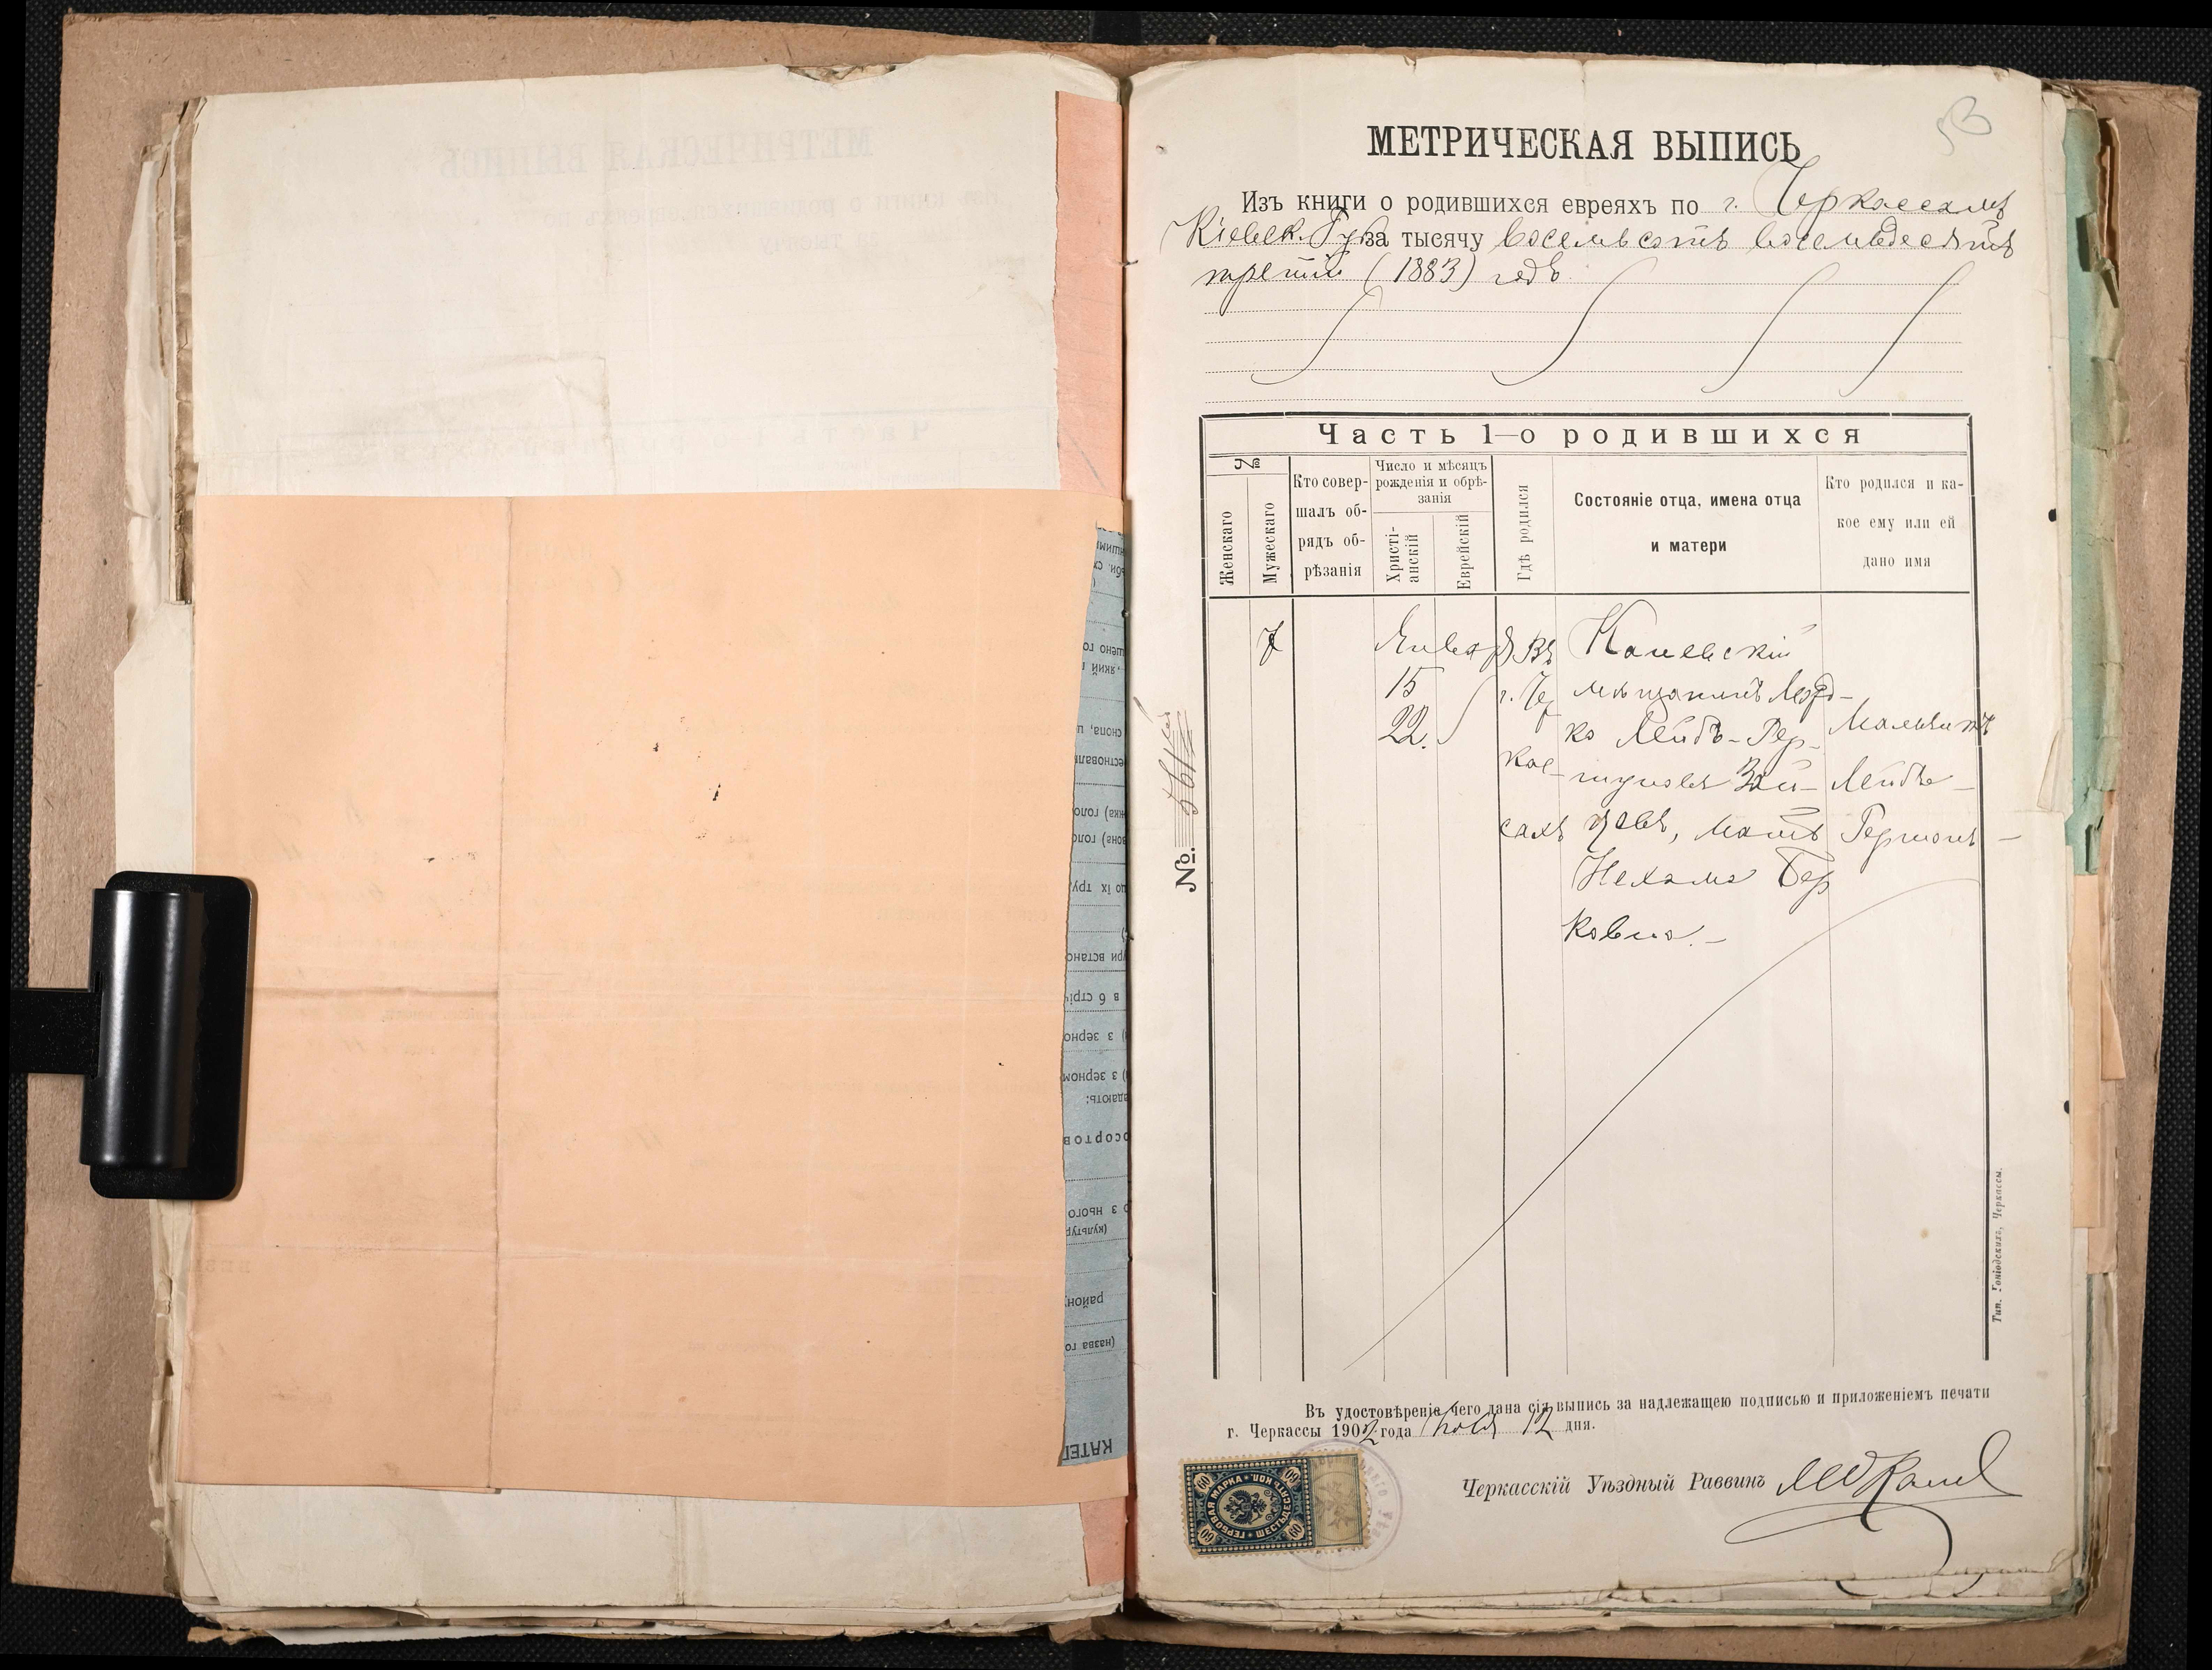 МЕТРИЧЕСКАЯ ВЫПИСЬ
Изъ книги о родившихся евреяхъ по г. Черкассамъ
Кіевск. Губ. за тысячу восемьсотъ восемьдесятъ
третій (1883) годъ
Часть 1—о родившихся
№
Женскаго
Мужескаго
Кто совер-
шалъ об-
рядъ об-
рѣзанія
Число и мѣсяцъ
рожденія и обрѣ-
занія
Христі-
анскій
Еврейскій
Гдѣ родился
Состояніе отца, имена отца
и матери
Кто родился и ка-
кое ему или ей
дано имя
7
Январ
15
22.
Въ
г. Чер
кас-
сахъ
Каневскій
мѣщанинъ Мордко
Лейбъ-Гер-
шуновъ
мать
Нехама Бер
ковна.-
Мальчикъ
Лейбъ-
Гершонъ-
№.
Тип. Гоніодскихъ, Черкассы.
Въ удостовѣреніе чего дана сія выпись за надлежащею подписью и приложеніемъ печати
г. Черкассы 1902 года Ноя 12 дня.
Черкасскій Уѣздный Раввинъ
ГЕРБОВАЯ МАРКА • ШЕСТЬДЕСЯТЪ КОП.
60
60
60
60
шено го
який
снопа, ц
ествовали
голо
вона) голо
о їх тру
ри встано
в 6 стріч
) з зерно
) з зерном
дають:
осортов
о з нього
(культур
район
(назва го
КАТЕГ